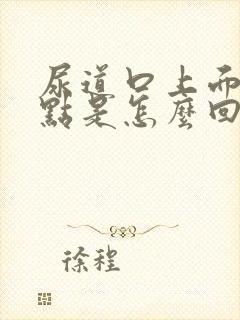 尿道口上而
點是怎麼回
徐程